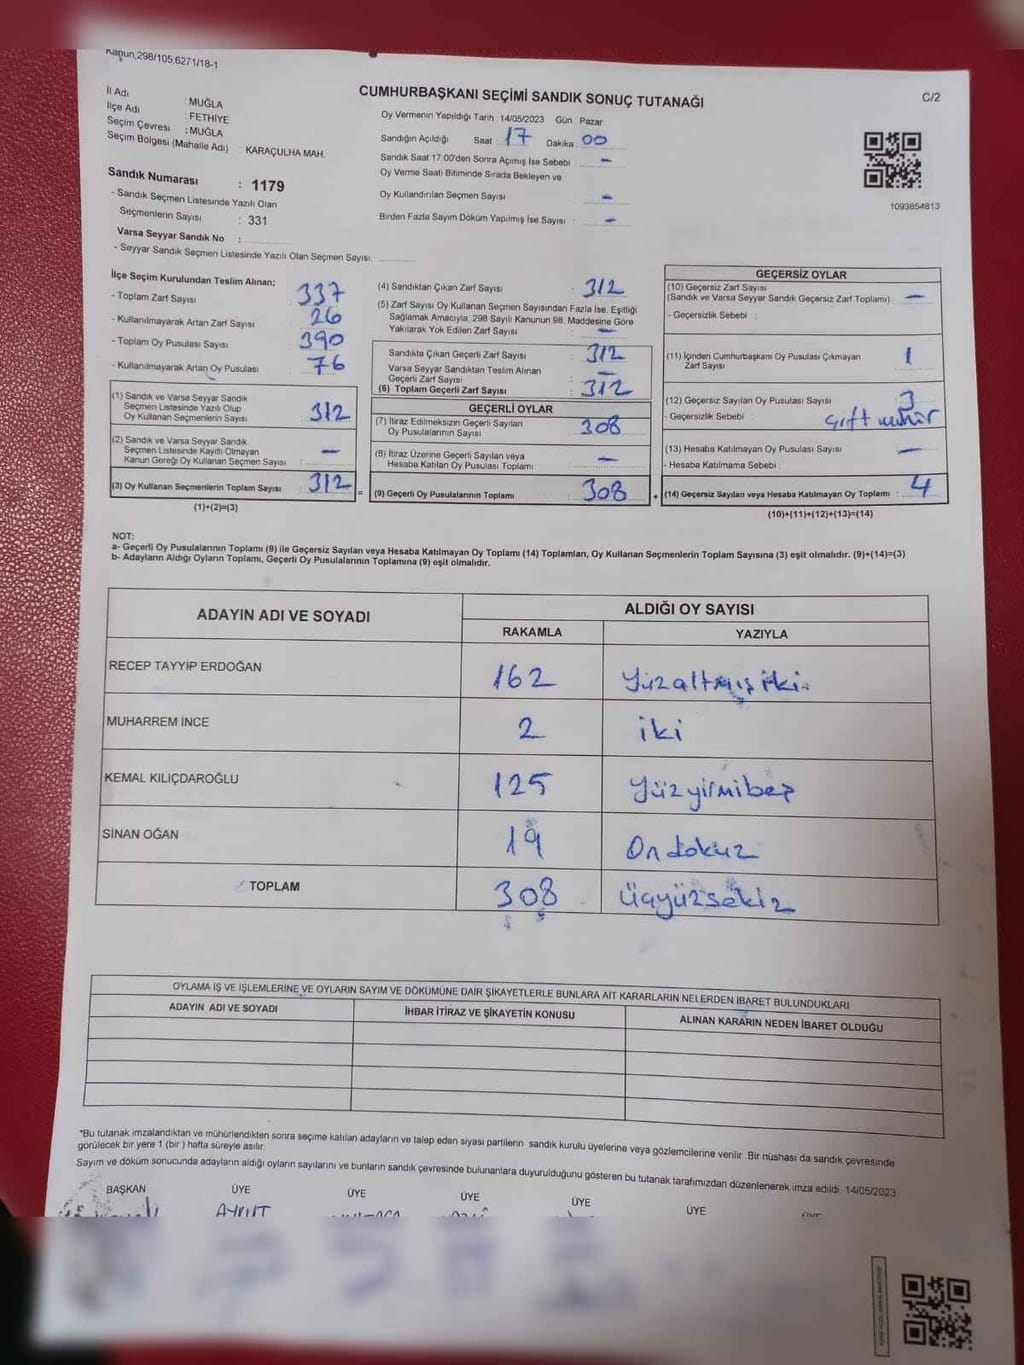 Kanun.298/105.6271/18-1
CUMHURBAŞKANI SEÇİMİ SANDIK SONUÇ TUTANAĞI
C/2
İl Adı : MUĞLA
İlçe Adı : FETHİYE
Seçim Çevresi : MUĞLA
Seçim Bölgesi (Mahalle Adı) : KARAÇULHA MAH.
Sandık Numarası : 1179
- Sandık Seçmen Listesinde Yazılı Olan
Seçmenlerin Sayısı : 331
Varsa Seyyar Sandık No :
- Seyyar Sandık Seçmen Listesinde Yazılı Olan Seçmen Sayısı:
Oy Vermenin Yapıldığı Tarih : 14/05/2023 Gün : Pazar
Sandığın Açıldığı Saat : 17 Dakika : 00
Sandık Saat 17:00'den Sonra Açımış İse Sebebi : -
Oy Verme Saati Bitiminde Sırada Bekleyen ve
Oy Kullandırılan Seçmen Sayısı : -
Birden Fazla Sayım Döküm Yapılmış İse Sayısı : -
1093854813
İlçe Seçim Kurulundan Teslim Alınan;
- Toplam Zarf Sayısı : 337
- Kullanılmayarak Artan Zarf Sayısı : 26
- Toplam Oy Pusulası Sayısı : 390
- Kullanılmayarak Artan Oy Pusulası : 76
(1) Sandık ve Varsa Seyyar Sandık
Seçmen Listesinde Yazılı Olup
Oy Kullanan Seçmenlerin Sayısı : 312
(2) Sandık ve Varsa Seyyar Sandık
Seçmen Listesinde Kayıtlı Olmayan
Kanun Gereği Oy Kullanan Seçmen Sayısı : -
(3) Oy Kullanan Seçmenlerin Toplam Sayısı : 312
(1)+(2)=(3)
(4) Sandıktan Çıkan Zarf Sayısı : 312
(5) Zarf Sayısı Oy Kullanan Seçmen Sayısından Fazla İse, Eşitliği
Sağlamak Amacıyla, 298 Sayılı Kanunun 98. Maddesine Göre
Yakılarak Yok Edilen Zarf Sayısı : -
Sandıkta Çıkan Geçerli Zarf Sayısı : 312
Varsa Seyyar Sandıktan Teslim Alınan
Geçerli Zarf Sayısı : -
(6) Toplam Geçerli Zarf Sayısı : 312
GEÇERLİ OYLAR
(7) İtiraz Edilmeksizin Geçerli Sayılan
Oy Pusulalarının Sayısı : 308
(8) İtiraz Üzerine Geçerli Sayılan veya
Hesaba Katılan Oy Pusulası Toplamı : -
= (9) Geçerli Oy Pusulalarının Toplamı : 308 +
GEÇERSİZ OYLAR
(10) Geçersiz Zarf Sayısı
(Sandık ve Varsa Seyyar Sandık Geçersiz Zarf Toplamı) : -
- Geçersizlik Sebebi :
(11) İçinden Cumhurbaşkanı Oy Pusulası Çıkmayan
Zarf Sayısı : 1
(12) Geçersiz Sayılan Oy Pusulası Sayısı : 3
- Geçersizlik Sebebi : çift mühür
(13) Hesaba Katılmayan Oy Pusulası Sayısı : -
- Hesaba Katılmama Sebebi :
(14) Geçersiz Sayılan veya Hesaba Katılmayan Oy Toplamı : 4
(10)+(11)+(12)+(13)=(14)
NOT:
a- Geçerli Oy Pusulalarının Toplamı (9) ile Geçersiz Sayılan veya Hesaba Katılmayan Oy Toplamı (14) Toplamları, Oy Kullanan Seçmenlerin Toplam Sayısına (3) eşit olmalıdır. (9)+(14)=(3)
b- Adayların Aldığı Oyların Toplamı, Geçerli Oy Pusulalarının Toplamına (9) eşit olmalıdır.
ADAYIN ADI VE SOYADI ALDIĞI OY SAYISI
RAKAMLA YAZIYLA
RECEP TAYYİP ERDOĞAN 162 Yüzaltmış iki
MUHARREM İNCE 2 iki
KEMAL KILIÇDAROĞLU 125 Yüzyirmibeş
SİNAN OĞAN 19 Ondokuz
TOPLAM 308 Üçyüzsekiz
OYLAMA İŞ VE İŞLEMLERİNE VE OYLARIN SAYIM VE DÖKÜMÜNE DAİR ŞİKAYETLERLE BUNLARA AİT KARARLARIN NELERDEN İBARET BULUNDUKLARI
ADAYIN ADI VE SOYADI İHBAR İTİRAZ VE ŞİKAYETİN KONUSU ALINAN KARARIN NEDEN İBARET OLDUĞU
*Bu tutanak imzalandıktan ve mühürlendikten sonra seçime katılan adayların ve talep eden siyasi partilerin sandık kurulu üyelerine veya gözlemcilerine verilir. Bir nüshası da sandık çevresinde
görülecek bir yere 1 (bir) hafta süreyle asılır.
Sayım ve döküm sonucunda adayların aldığı oyların sayılarını ve bunların sandık çevresinde bulunanlara duyurulduğunu gösteren bu tutanak tarafımızdan düzenlenerek imza edildi. 14/05/2023
BAŞKAN ÜYE ÜYE ÜYE ÜYE ÜYE